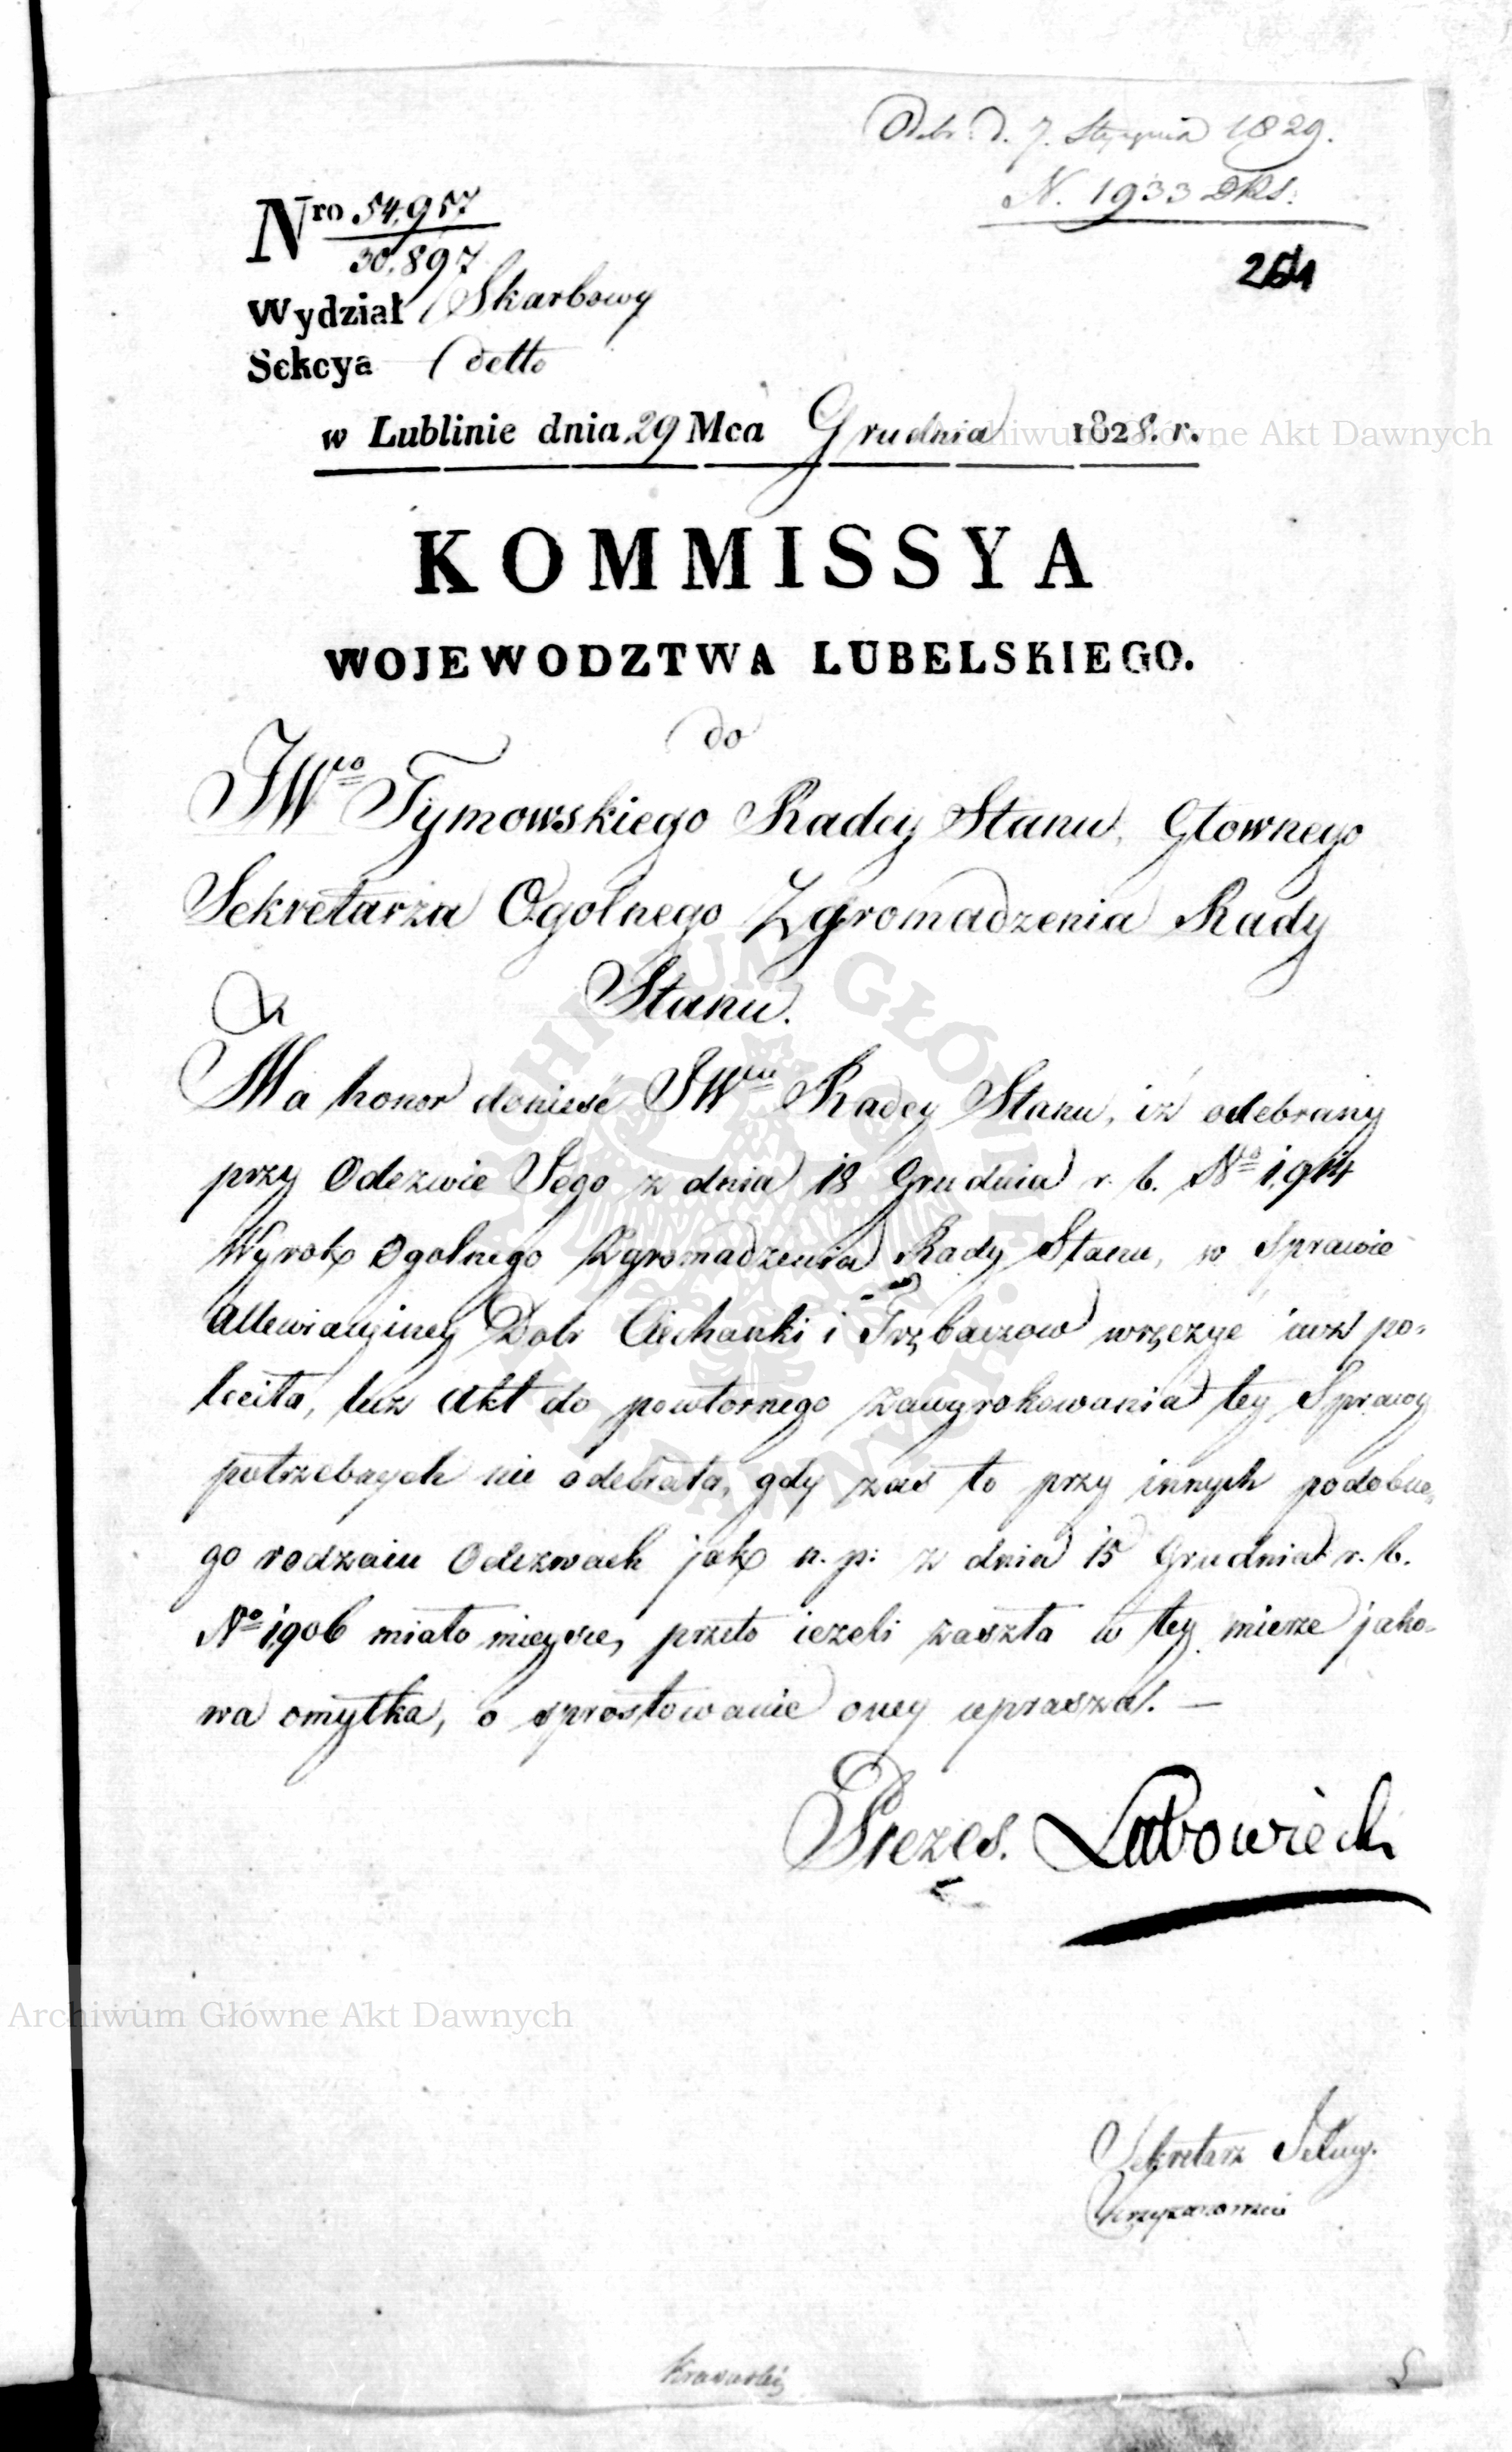 Odebr. d. 7. Stycznia 1829.
N. 1933 DKS.
Nro 54,957
30,897
261
Wydział Skarbowy
Sekcya detto
w Lublinie dnia 29 Mca Grudnia 1828. r.
KOMMISSYA
WOJEWODZTWA LUBELSKIEGO.
do
JWgo Tymowskiego Radcy Stanu, Głownego
Sekretarza Ogolnego Zgromadzenia Rady
Stanu.
Ma honor donieść JWmu Radcy Stanu, iż odebrany
przy Odezwie Jego z dnia 18 Grudnia r. b. No 1,914
Wyrok Ogolnego Zgromadzenia Rady Stanu, w Sprawie
allewiacyiney Dobr Ciechanki i Trębaczow wręczyć iuż po-
leciła, lecz Akt do powtornego zawyrokowania tey Sprawy
potrzebnych nie odebrała, gdy zaś to przy innych podobne-
go rodzaiu Odezwach jak n. p: z dnia 15 Grudnia r. b.
No 1,906 miało mieysce, przeto ieżeli zaszła w tey mierze jako-
wa omyłka, o sprostowanie oney uprasza. —
Prezes. Lubowiecki
Sekretarz Jelny.
Krasuski
Archiwum Główne Akt Dawnych